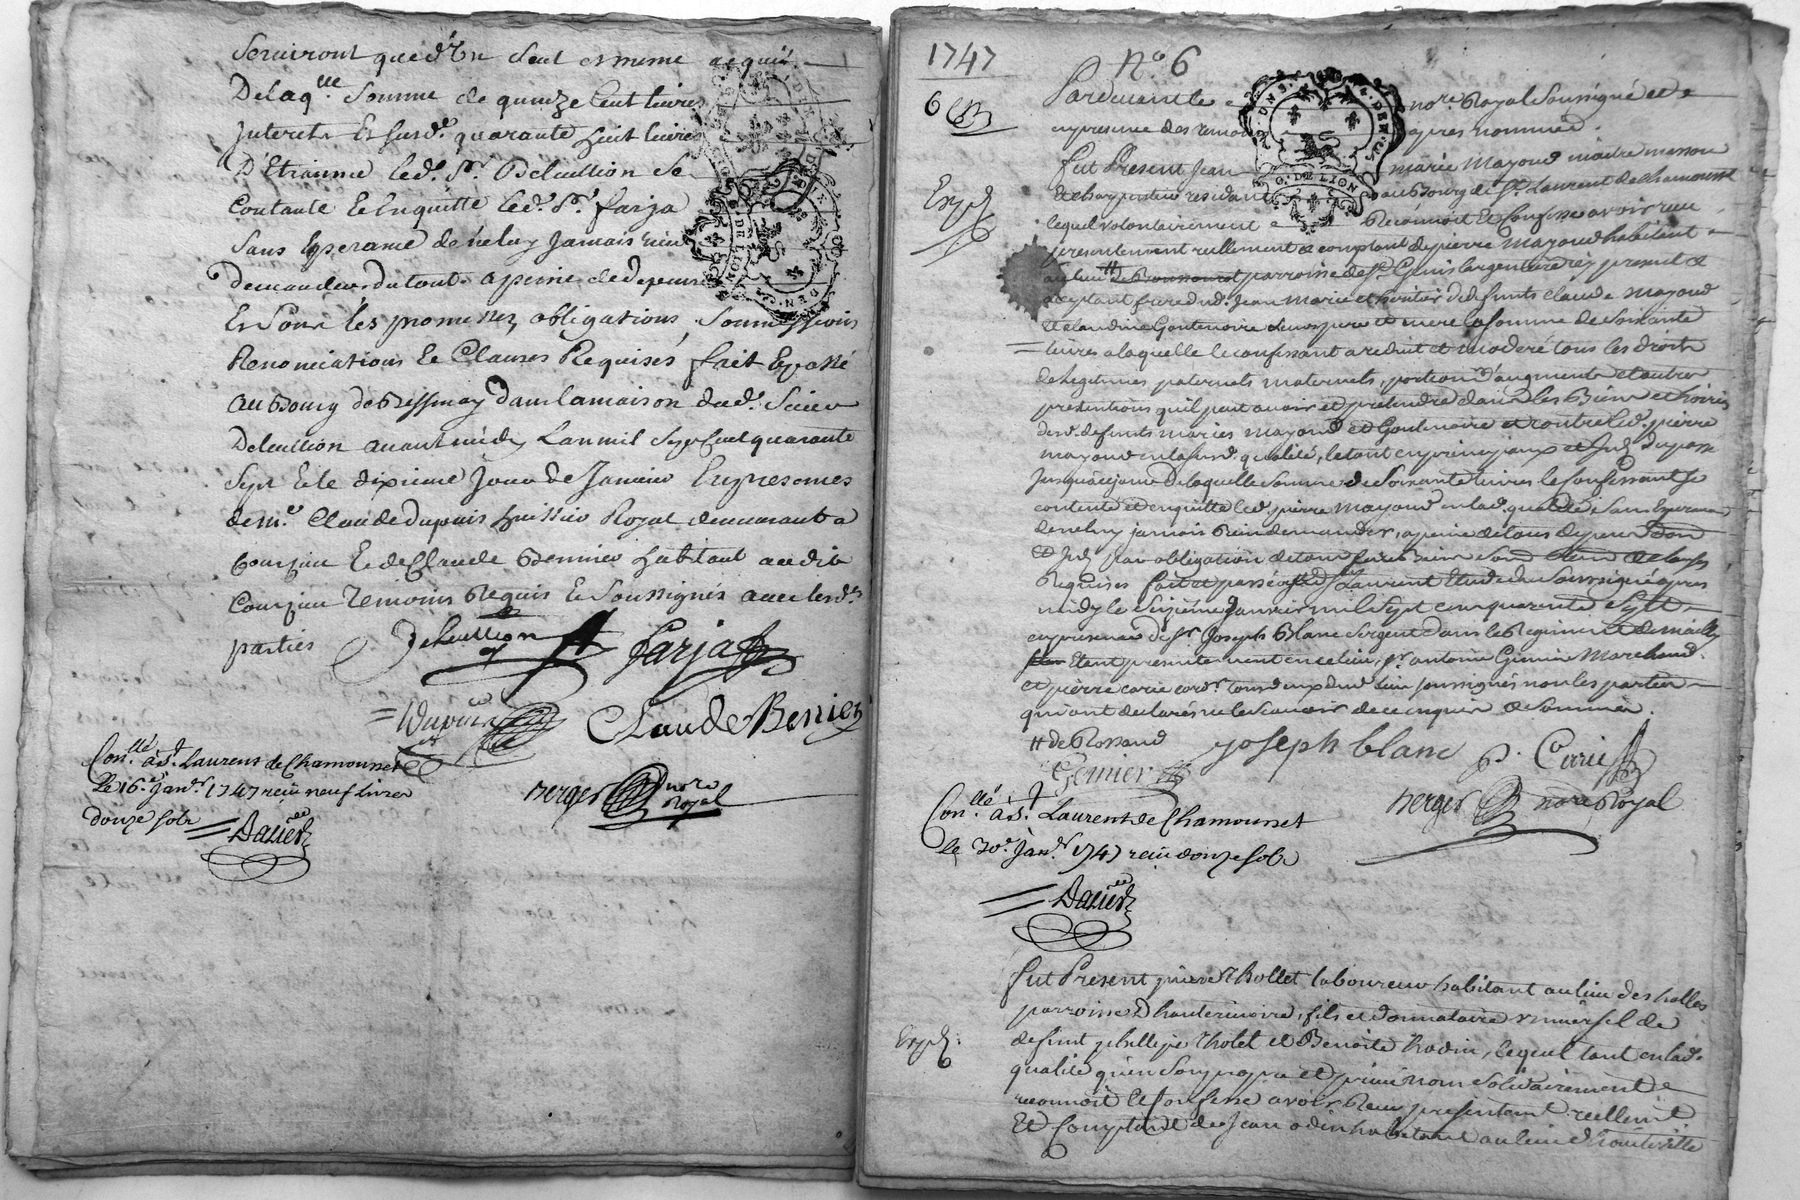 Serviront que d'Un Seul et meme acquit
Delaq.lle Somme de quinze Cent livres
Interets Et Susd.e quarante huit livres
D'Etrainne led. Sr. Deluillion Se
Contante Et Enquitte led. Sr. farja
Sans Esperance de neluy Jamais rien
Demander du tout a peine de depens
Et Sous les promesses obligations Soumissions
Renonciations Et Clauses Requises fait Et passé
Au Bourg de Bessenay Dans la maison dud. Sieur
Deluillion avant midy L'an mil Sept Cent quarante
Sept Et le dixieme Jour de Janvier En presences
de m.e Claude Dupuis huissier Royal demeurant a
Courzieu Et de Claude Bernier habitant audit
Courzieu Temoins Requis Et Soussignés avec lesd.
parties
Farja
Dupuis Claude Bernier
Con.llé à S.t Laurent de Chamousset
Le 16.e Janv.r 1747 reçu neuf livres
douze sols
Berger no.re
Royal
1747
N.o 6
6
Pardevant le no.re Royal Soussigné et
en presence des temoins apres nommés.
Exp.é
fut Present Jean marie Mazoud maitre masson
et charpentier residant au Bourg de St. Laurent de Chamousset
lequel volontairement Reconnoit Et Confesse avoir reçu
presentement reellement et comptant de pierre Mazoud habitant
au lieu parroisse de St. Genis largentiere icy present et
acceptant frere dud. Jean Marie et heritier de defunts Claude Mazoud
et claudine Gontenoire leurs pere et mere la Somme de Soixante
livres a laquelle le confessant a reduit et moderé tous les droits
de legitimes paternels maternels, portion d'augment et autres
pretentions qu'il peut avoir et pretendre dans les Biens et hoiries
desd. defunts mariés mazoud et Gontenoire et contre led. pierre
mazoud en lasusd. qualité, le tout en principaux et du passé
Jusqu'à ce jour De laquelle Somme de Soixante livres le Confessant Se
contente et en quitte led. pierre mazoud en lad. qualité, Sans Esperance
de neluy jamais Rien demander, a peine de tous depens
par obligation de tous Ses Biens
Requises fait et passé aud. St. Laurent Etude du Soussigné apres
midy le Seizième Janvier mil Sept cent quarente Sept
en presence de Sr. Joseph Blanc Sergent dans le Regiment de mailly
Etant presentement en ce lieu, Sr. antoine Gemier Marchand
et pierre carrie cord.r tous deux dud. lieu soussignés non les parties
qui ont declaré ne le Scavoir de ce enquis et Sommés.
# de Rossand
Joseph blanc
P. Carrie
Gemier
Berger no.re Royal
Con.llé à S.t Laurent de Chamousset
le 30.e Janv.r 1747 reçu douze sols
Exp.é
fut Present pierre Thollet laboureur habitant au lieu des halles
parroisse D'hauterivoire, fils et donnataire universel de
defunt phellipe Tholet et Benoite Rodin, lequel tant en lad.
qualité qu'en Son propre et privé nom solidairement
reconnoit Et Confesse avoir Reçu presentement reellement
Et Comptant de Jean odin habitant au lieu d'hauteville